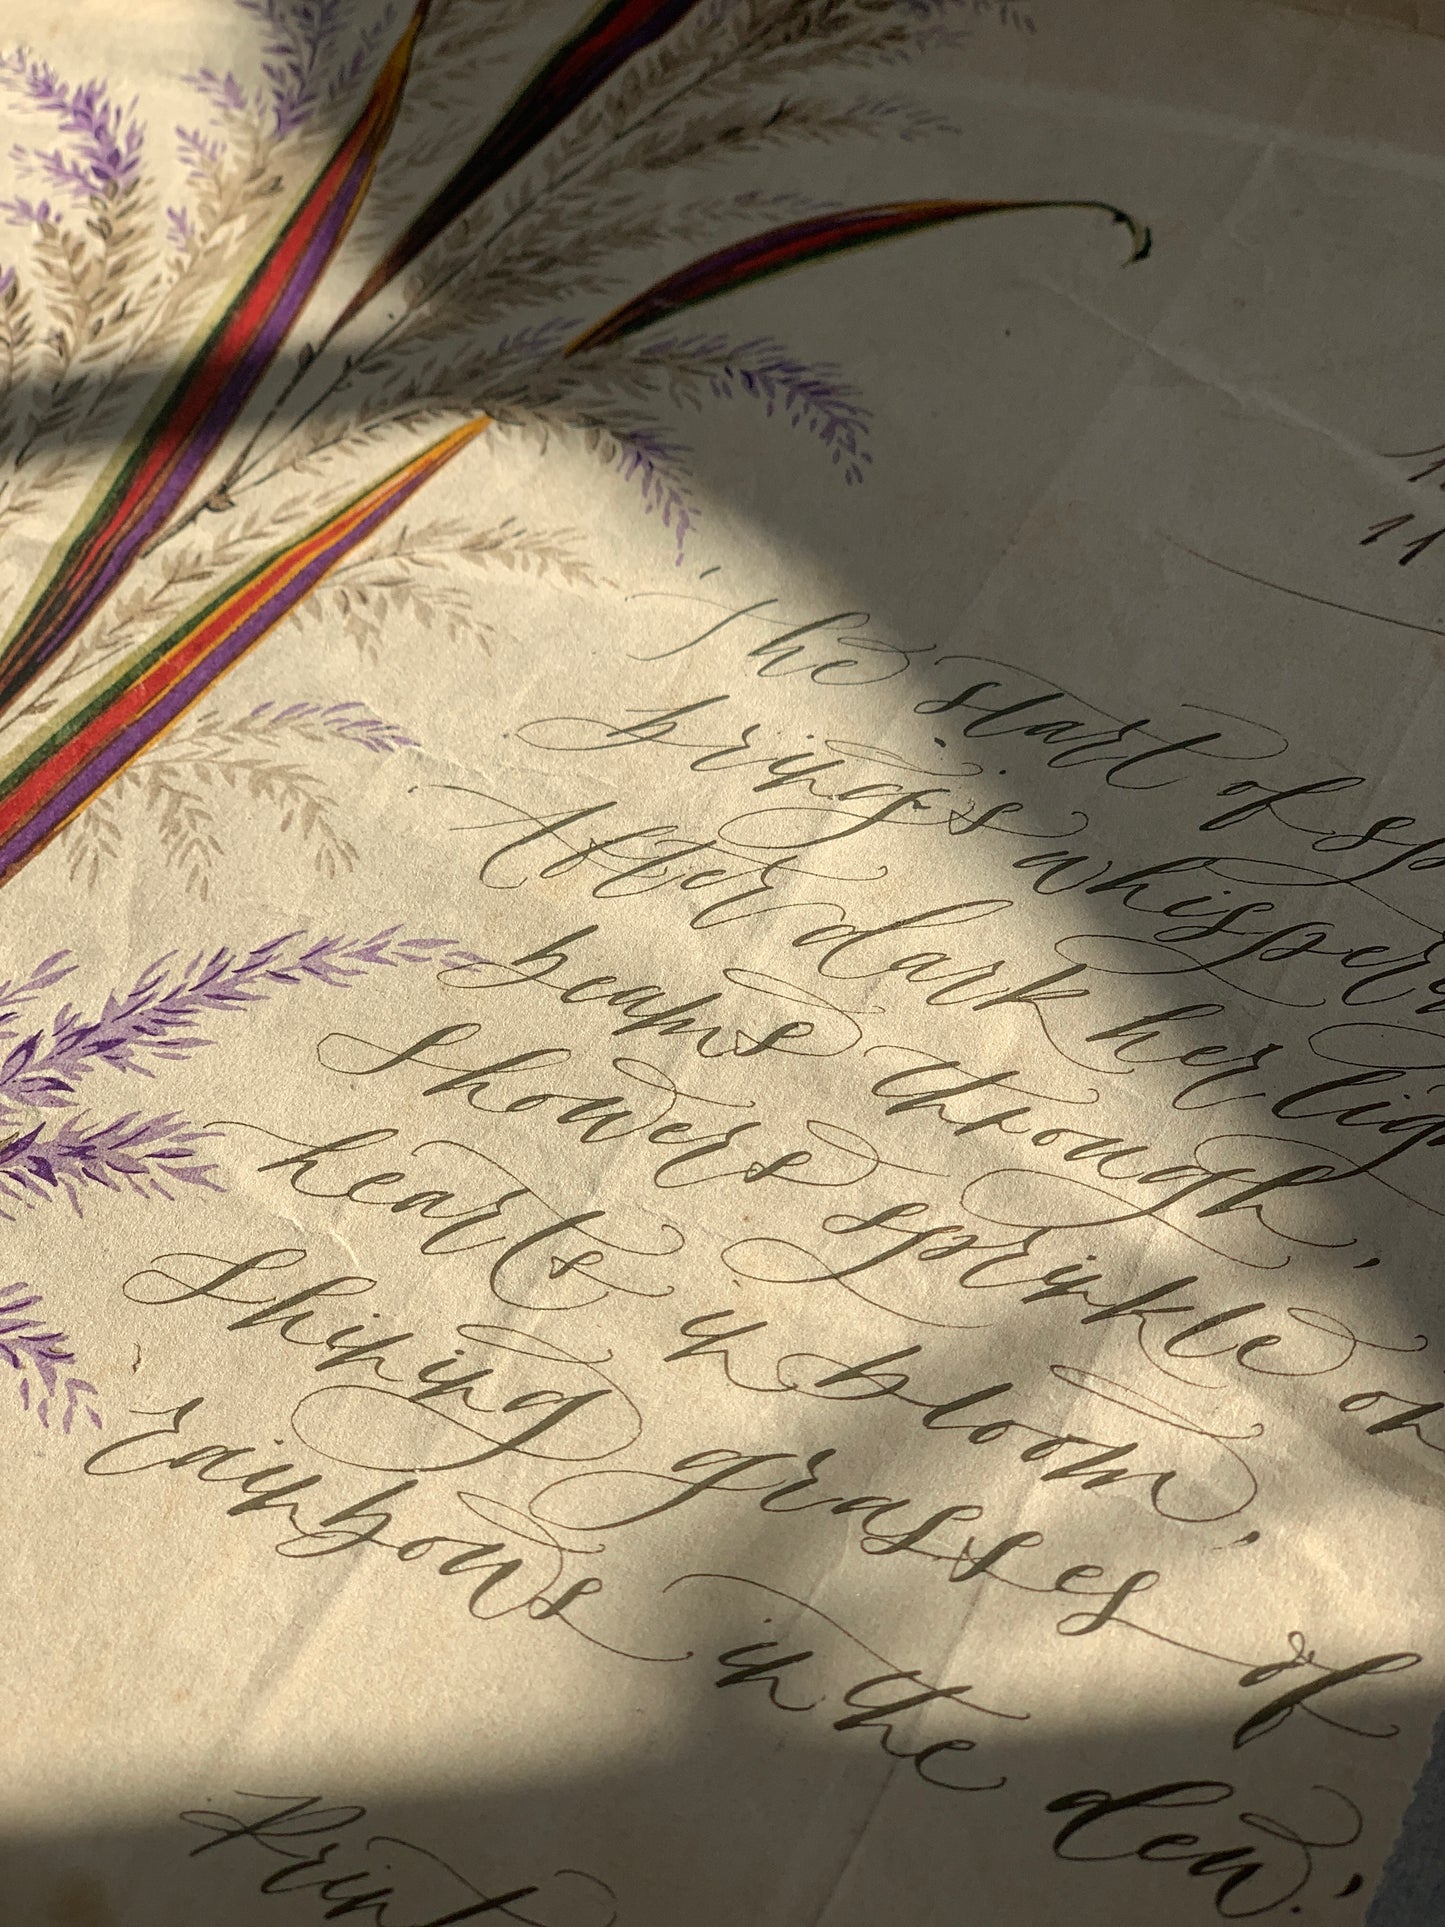 11
The start of sp
brings whispery
After dark her lig
beams through,
Showers sprinkle on
hearts in bloom,
Shining grasses of
rainbows in the dew.
Print